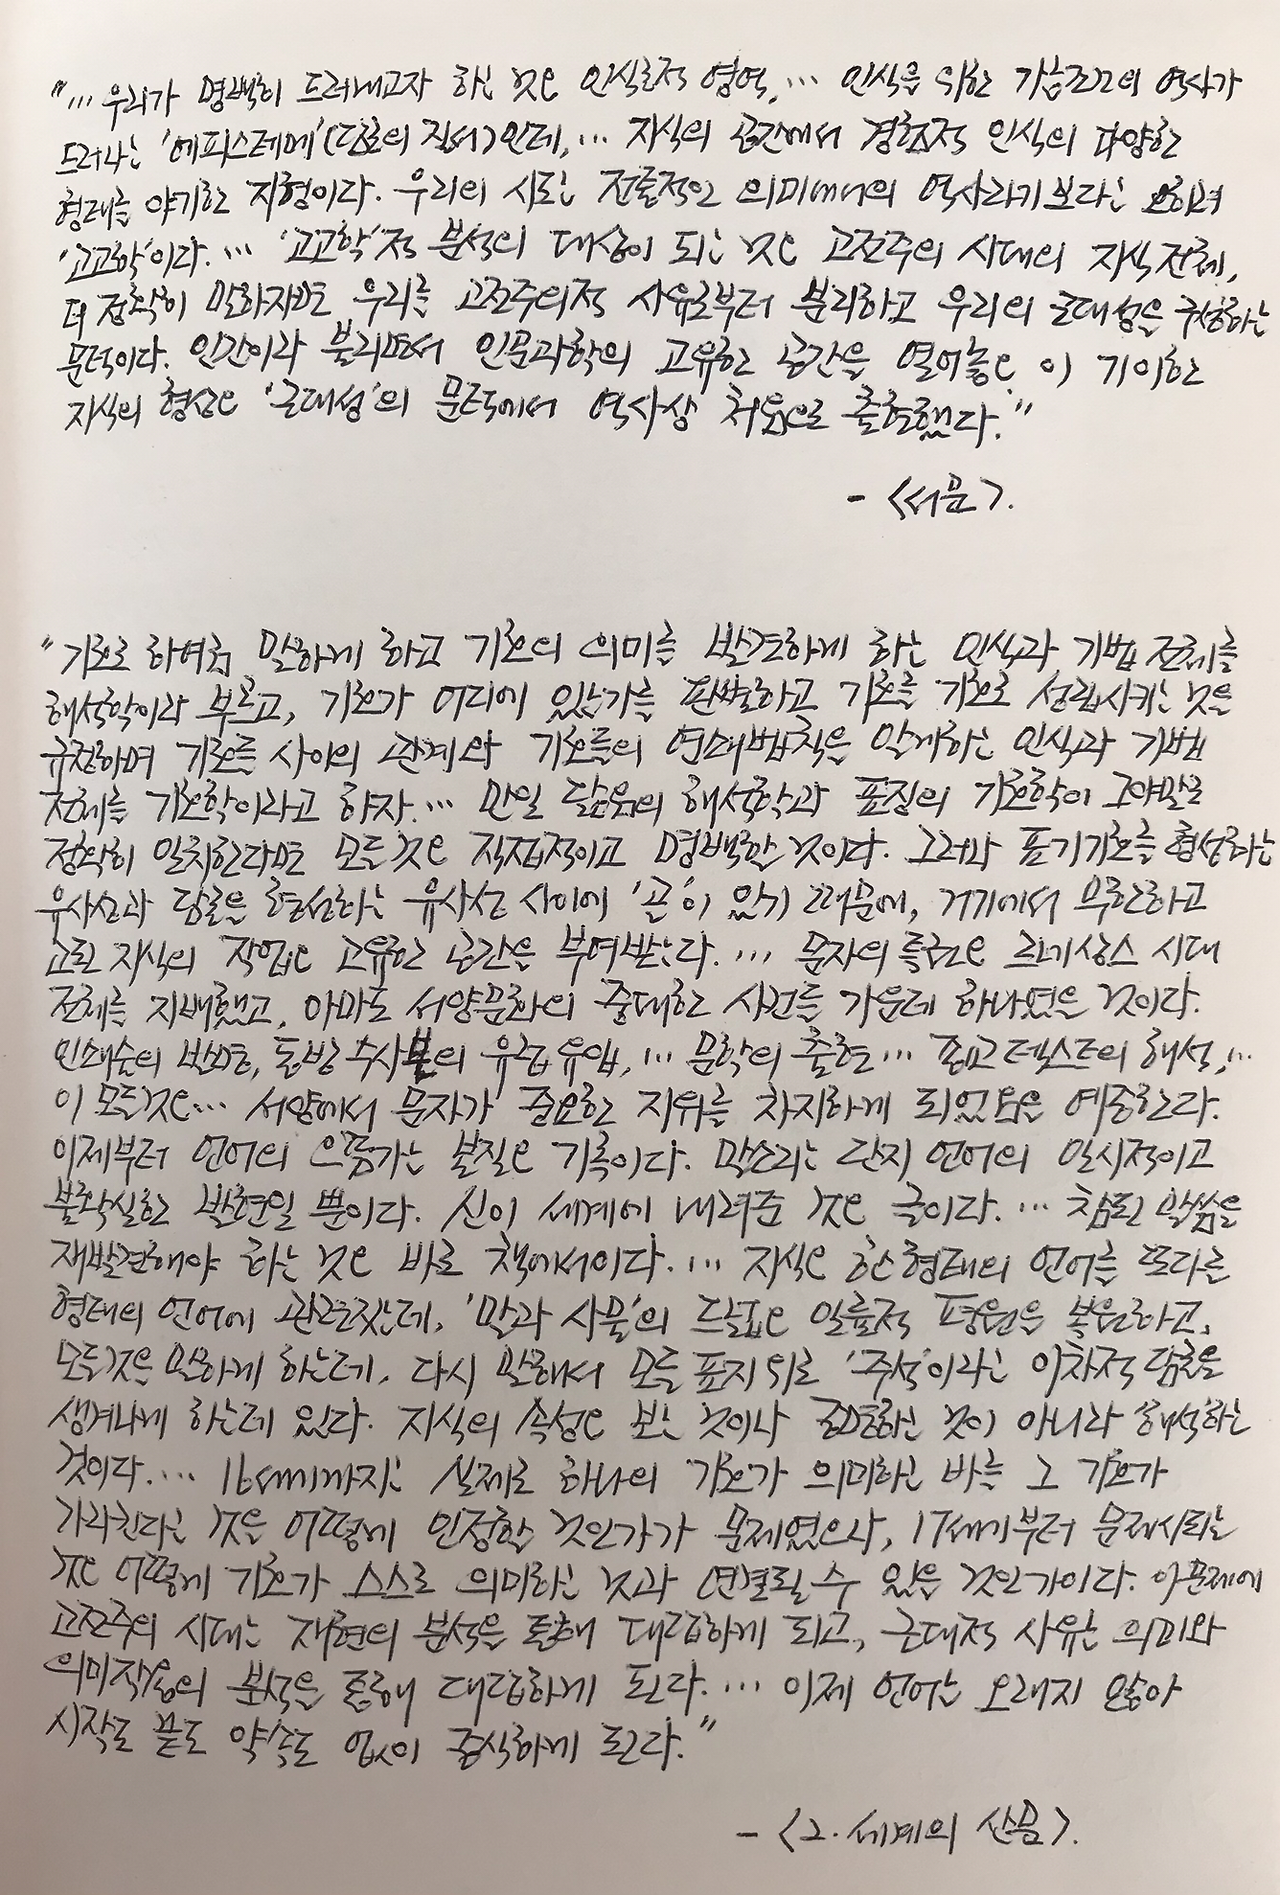 "… 우리가 명백히 드러내고자 하는 것은 인식론적 영역, … 인식을 위한 가능조건의 역사가
드러나는 '에피스테메'(담론의 질서)인데, … 지식의 공간에서 경험적 인식의 다양한
형태를 야기한 지형이다. 우리의 시도는 전통적인 의미에서의 역사라기보다는 오히려
'고고학'이다. … '고고학'적 분석의 대상이 되는 것은 고전주의 시대의 지식 전체,
더 정확히 말하자면 우리를 고전주의적 사유로부터 분리하고 우리의 근대성을 구성하는
문턱이다. 인간이라 불리면서 인문과학의 고유한 공간을 열어놓은 이 기이한
지식의 형상은 '근대성'의 문턱에서 역사상 처음으로 출현했다."
- <서문>.
"기호로 하여금 말하게 하고 기호의 의미를 발견하게 하는 인식과 기법 전체를
해석학이라 부르고, 기호가 어디에 있는가를 판별하고 기호를 기호로 성립시키는 것을
규정하며 기호들 사이의 관계와 기호들의 연쇄법칙을 알게하는 인식과 기법
전체를 기호학이라고 하자. … 만일 닮음의 해석학과 표징의 기호학이 그야말로
정확히 일치한다면 모든 것은 직접적이고 명백한 것이다. 그러나 표기기호를 형성하는
유사성과 담론을 형성하는 유사성 사이에 '곤'이 있기 때문에, 거기에서 무한하고
고된 지식의 작업은 고유한 공간을 부여받는다. … 문자의 특권은 르네상스 시대
전체를 지배했고, 아마도 서양문화의 중대한 사건들 가운데 하나였을 것이다.
인쇄술의 발명, 동방 수사본의 유럽 유입, … 문학의 출현 … 종교 텍스트의 해석, …
이 모든 것은 … 서양에서 문자가 중요한 지위를 차지하게 되었음을 예증한다.
이제부터 언어의 으뜸가는 본질은 기록이다. 목소리는 단지 언어의 일시적이고
불확실한 발현일 뿐이다. 신이 세계에 내려준 것은 글이다. … 참된 말씀을
재발견해야 하는 것은 바로 책에서이다. … 지식은 한 형태의 언어를 또다른
형태의 언어에 관련짓는데, '말과 사물'의 드넓은 일률적 평원을 복원하고,
모든 것을 말하게 하는데, 다시 말해서 모든 표지 위로 '주석'이라는 이차적 담론을
생겨나게 하는데 있다. 지식의 속성은 보는 것이나 증명하는 것이 아니라 '해석'하는
것이다. … 16세기까지는 실제로 하나의 기호가 의미하는 바를 그 기호가
가리킨다는 것을 어떻게 인정할 것인가가 문제였으나, 17세기부터 문제시되는
것은 어떻게 기호가 스스로 의미하는 것과 연결될 수 있을 것인가이다. 이 문제에
고전주의 시대는 재현의 분석을 통해 대답하게 되고, 근대적 사유는 의미와
의미작용의 분석을 통해 대답하게 된다. … 이제 언어는 오래지 않아
시작도 끝도 약속도 없이 증식하게 된다."
- <2. 세계의 산문>.